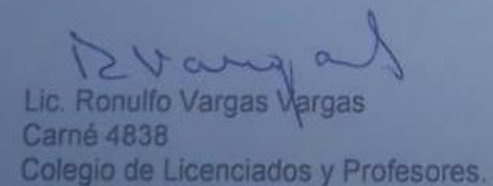 RVargas
Lic. Ronulfo Vargas Vargas
Carné 4838
Colegio de Licenciados y Profesores.